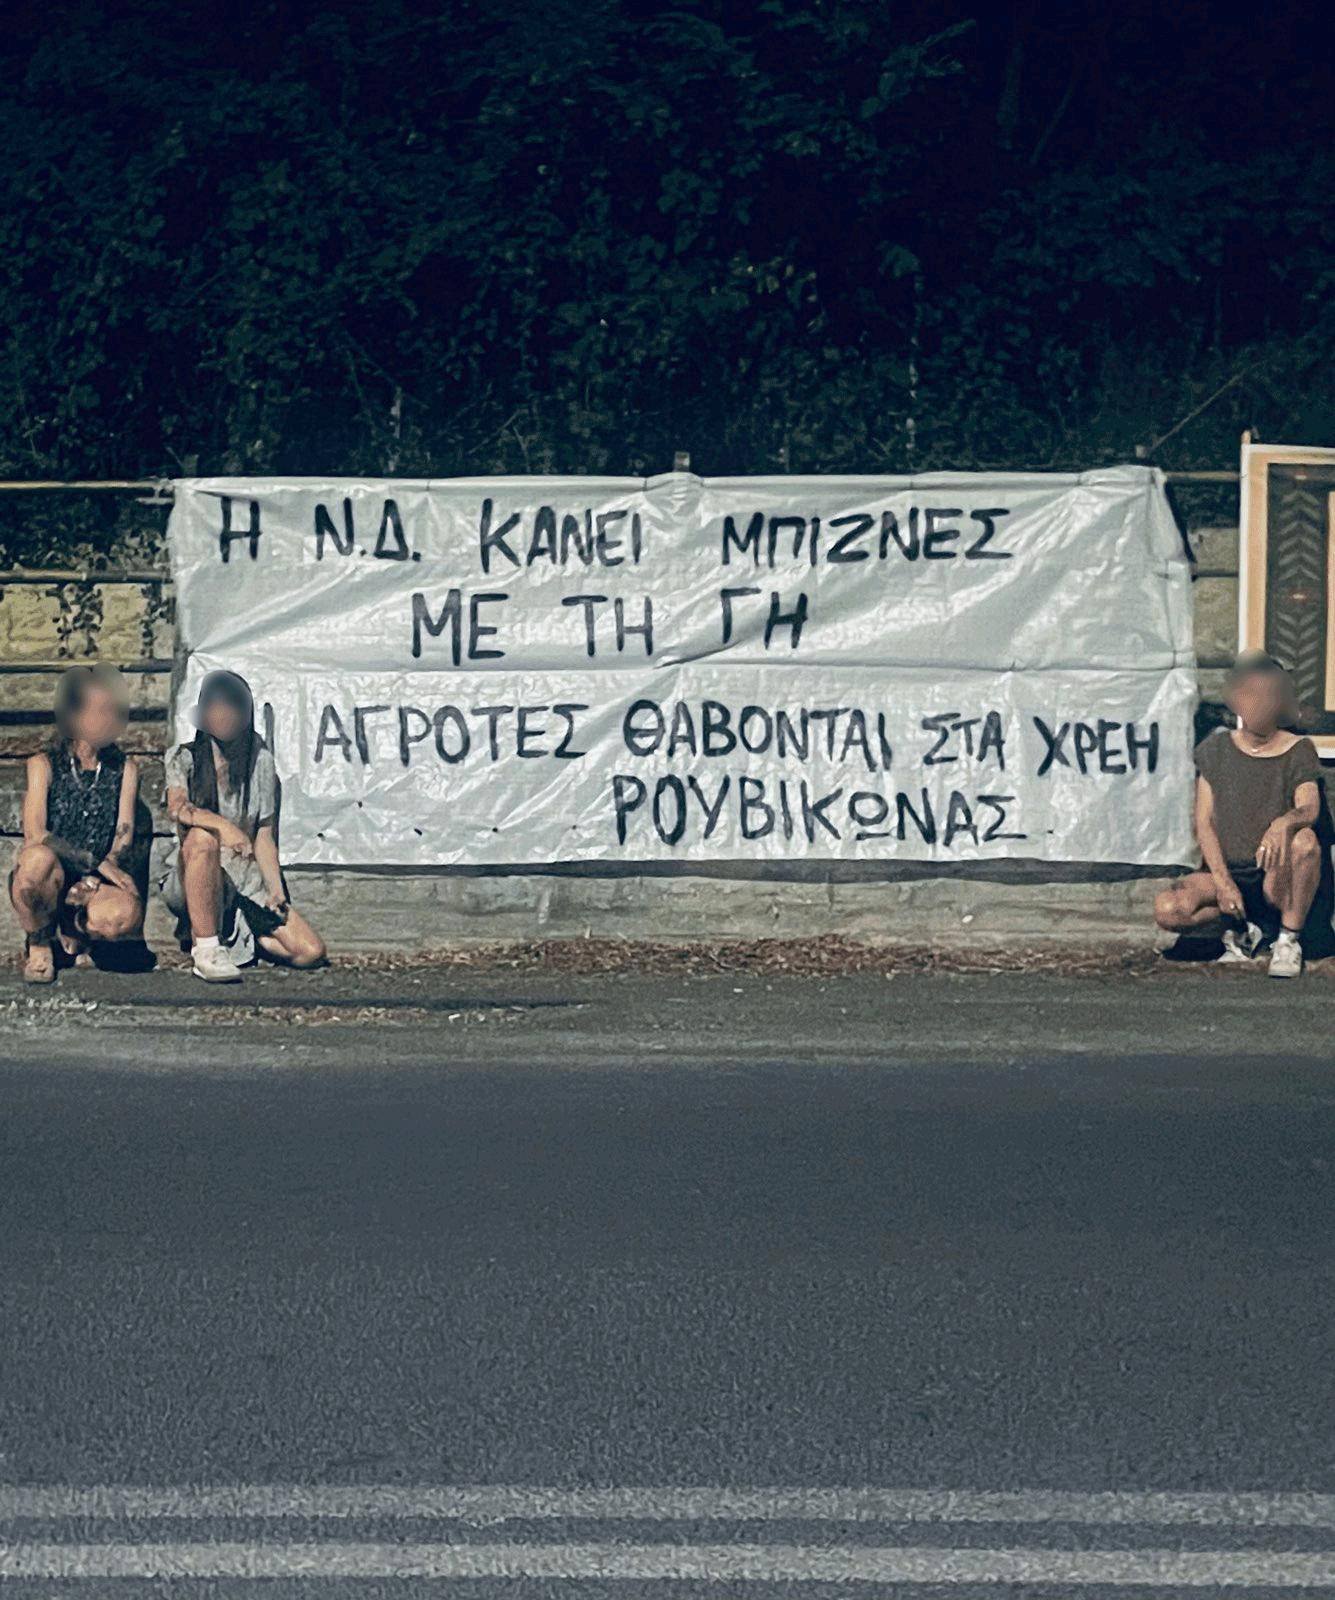 Η Ν.Δ. ΚΑΝΕΙ ΜΠΙΖΝΕΣ
ΜΕ ΤΗ ΓΗ
ΑΓΡΟΤΕΣ ΘΑΒΟΝΤΑΙ ΣΤΑ ΧΡΕΗ
ΡΟΥΒΙΚΩΝΑΣ